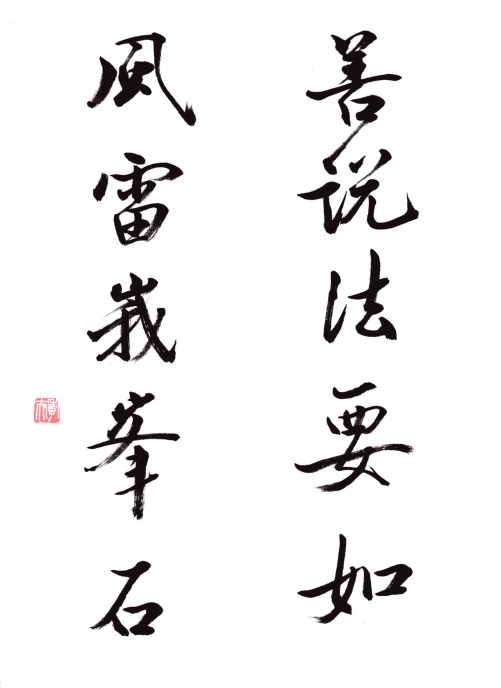 善説法要如
風雷峩峯石